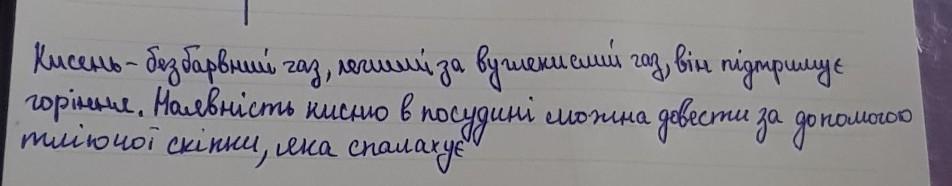 Кисень – безбарвний газ, легший за вуглекислий газ, він підтримує
горіння. Наявність кисню в посудині можна довести за допомогою
тліючої скіпки, яка спалахує